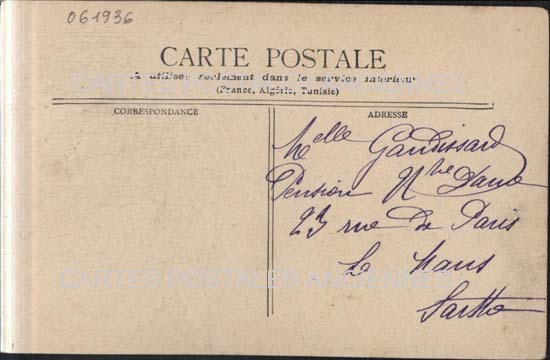 061936
CARTE POSTALE
A utiliser seulement dans le service intérieur
(France, Algérie, Tunisie)
CORRESPONDANCE
ADRESSE
Melle Gaudissard
Pension Nbre Dame
23 rue de Paris
Le Mans
Sarthe
CARTES POSTALES ANCIENNES